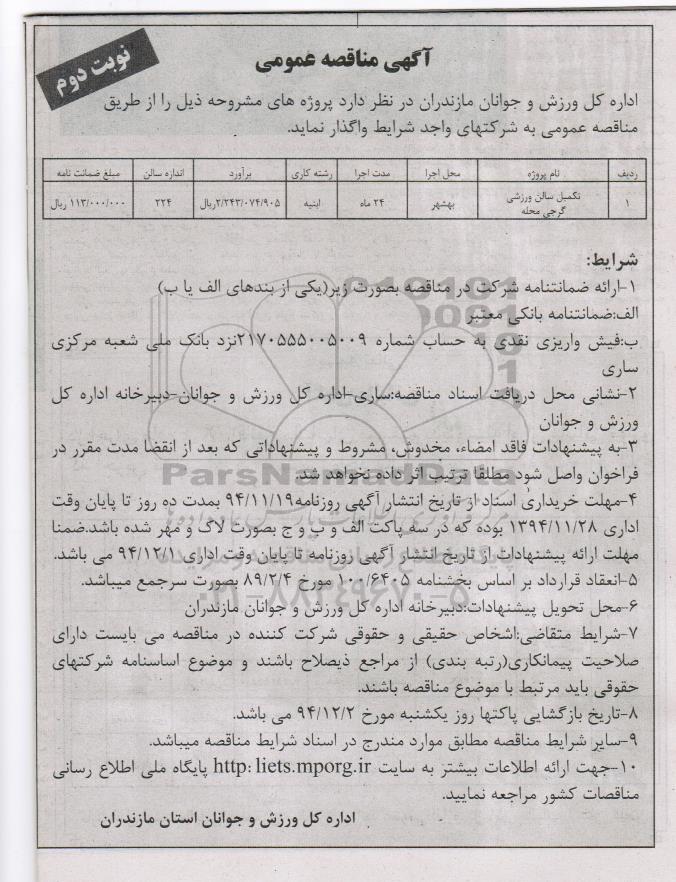 نوبت دوم
آگهی مناقصه عمومی
اداره کل ورزش و جوانان مازندران در نظر دارد پروژه های مشروحه ذیل را از طریق
مناقصه عمومی به شرکتهای واجد شرایط واگذار نماید.
ردیف نام پروژه محل اجرا مدت اجرا رشته کاری برآورد اندازه سالن مبلغ ضمانت نامه
۱ تکمیل سالن ورزشی گرجی محله بهشهر ۲۴ ماه ابنیه ۲/۲۴۳/۰۷۴/۹۰۵ریال ۲۲۴ ۱۱۳/۰۰۰/۰۰۰ ریال
شرایط:
۱-ارائه ضمانتنامه شرکت در مناقصه بصورت زیر(یکی از بندهای الف یا ب)
الف:ضمانتنامه بانکی معتبر
ب:فیش واریزی نقدی به حساب شماره ۲۱۷۰۵۵۵۰۰۵۰۰۹نزد بانک ملی شعبه مرکزی
ساری
۲-نشانی محل دریافت اسناد مناقصه:ساری-اداره کل ورزش و جوانان-دبیرخانه اداره کل
ورزش و جوانان
۳-به پیشنهادات فاقد امضاء، مخدوش، مشروط و پیشنهاداتی که بعد از انقضا مدت مقرر در
فراخوان واصل شود مطلقا ترتیب اثر داده نخواهد شد.
ParsNamadData
۴-مهلت خریداری اسناد از تاریخ انتشار آگهی روزنامه۹۴/۱۱/۱۹ بمدت ده روز تا پایان وقت
اداری ۱۳۹۴/۱۱/۲۸ بوده که در سه پاکت الف و ب و ج بصورت لاک و مهر شده باشد.ضمنا
مهلت ارائه پیشنهادات از تاریخ انتشار آگهی روزنامه تا پایان وقت اداری ۹۴/۱۲/۱ می باشد.
۵-انعقاد قرارداد بر اساس بخشنامه ۱۰۰/۶۴۰۵ مورخ ۸۹/۲/۴ بصورت سرجمع میباشد.
۰۲۱-۸۸۳۴۹۶۷۰-۵
۶-محل تحویل پیشنهادات:دبیرخانه اداره کل ورزش و جوانان مازندران
۷-شرایط متقاضی:اشخاص حقیقی و حقوقی شرکت کننده در مناقصه می بایست دارای
صلاحیت پیمانکاری(رتبه بندی) از مراجع ذیصلاح باشند و موضوع اساسنامه شرکتهای
حقوقی باید مرتبط با موضوع مناقصه باشند.
۸-تاریخ بازگشایی پاکتها روز یکشنبه مورخ ۹۴/۱۲/۲ می باشد.
۹-سایر شرایط مناقصه مطابق موارد مندرج در اسناد شرایط مناقصه میباشد.
۱۰-جهت ارائه اطلاعات بیشتر به سایت http: liets.mporg.ir پایگاه ملی اطلاع رسانی
مناقصات کشور مراجعه نمایید.
اداره کل ورزش و جوانان استان مازندران